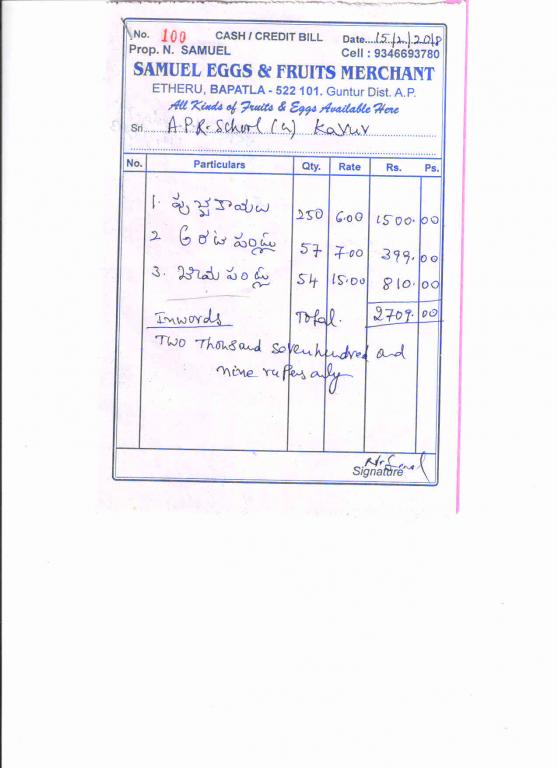 No. 100 CASH / CREDIT BILL Date...15/2/2018
Prop. N. SAMUEL Cell : 9346693780
SAMUEL EGGS & FRUITS MERCHANT
ETHERU, BAPATLA - 522 101. Guntur Dist. A.P.
All Kinds of Fruits & Eggs Available Here
Sri A.P.R. School (G) Kavur
No. Particulars Qty. Rate Rs. Ps.
1. పుచ్చకాయలు 250 6.00 1500.00
2 అరటి పండ్లు 57 7.00 399.00
3. జామ పండ్లు 54 15.00 810.00
Inwords Total. 2709.00
Two Thousand Seven hundred and
nine rupees only
Signature